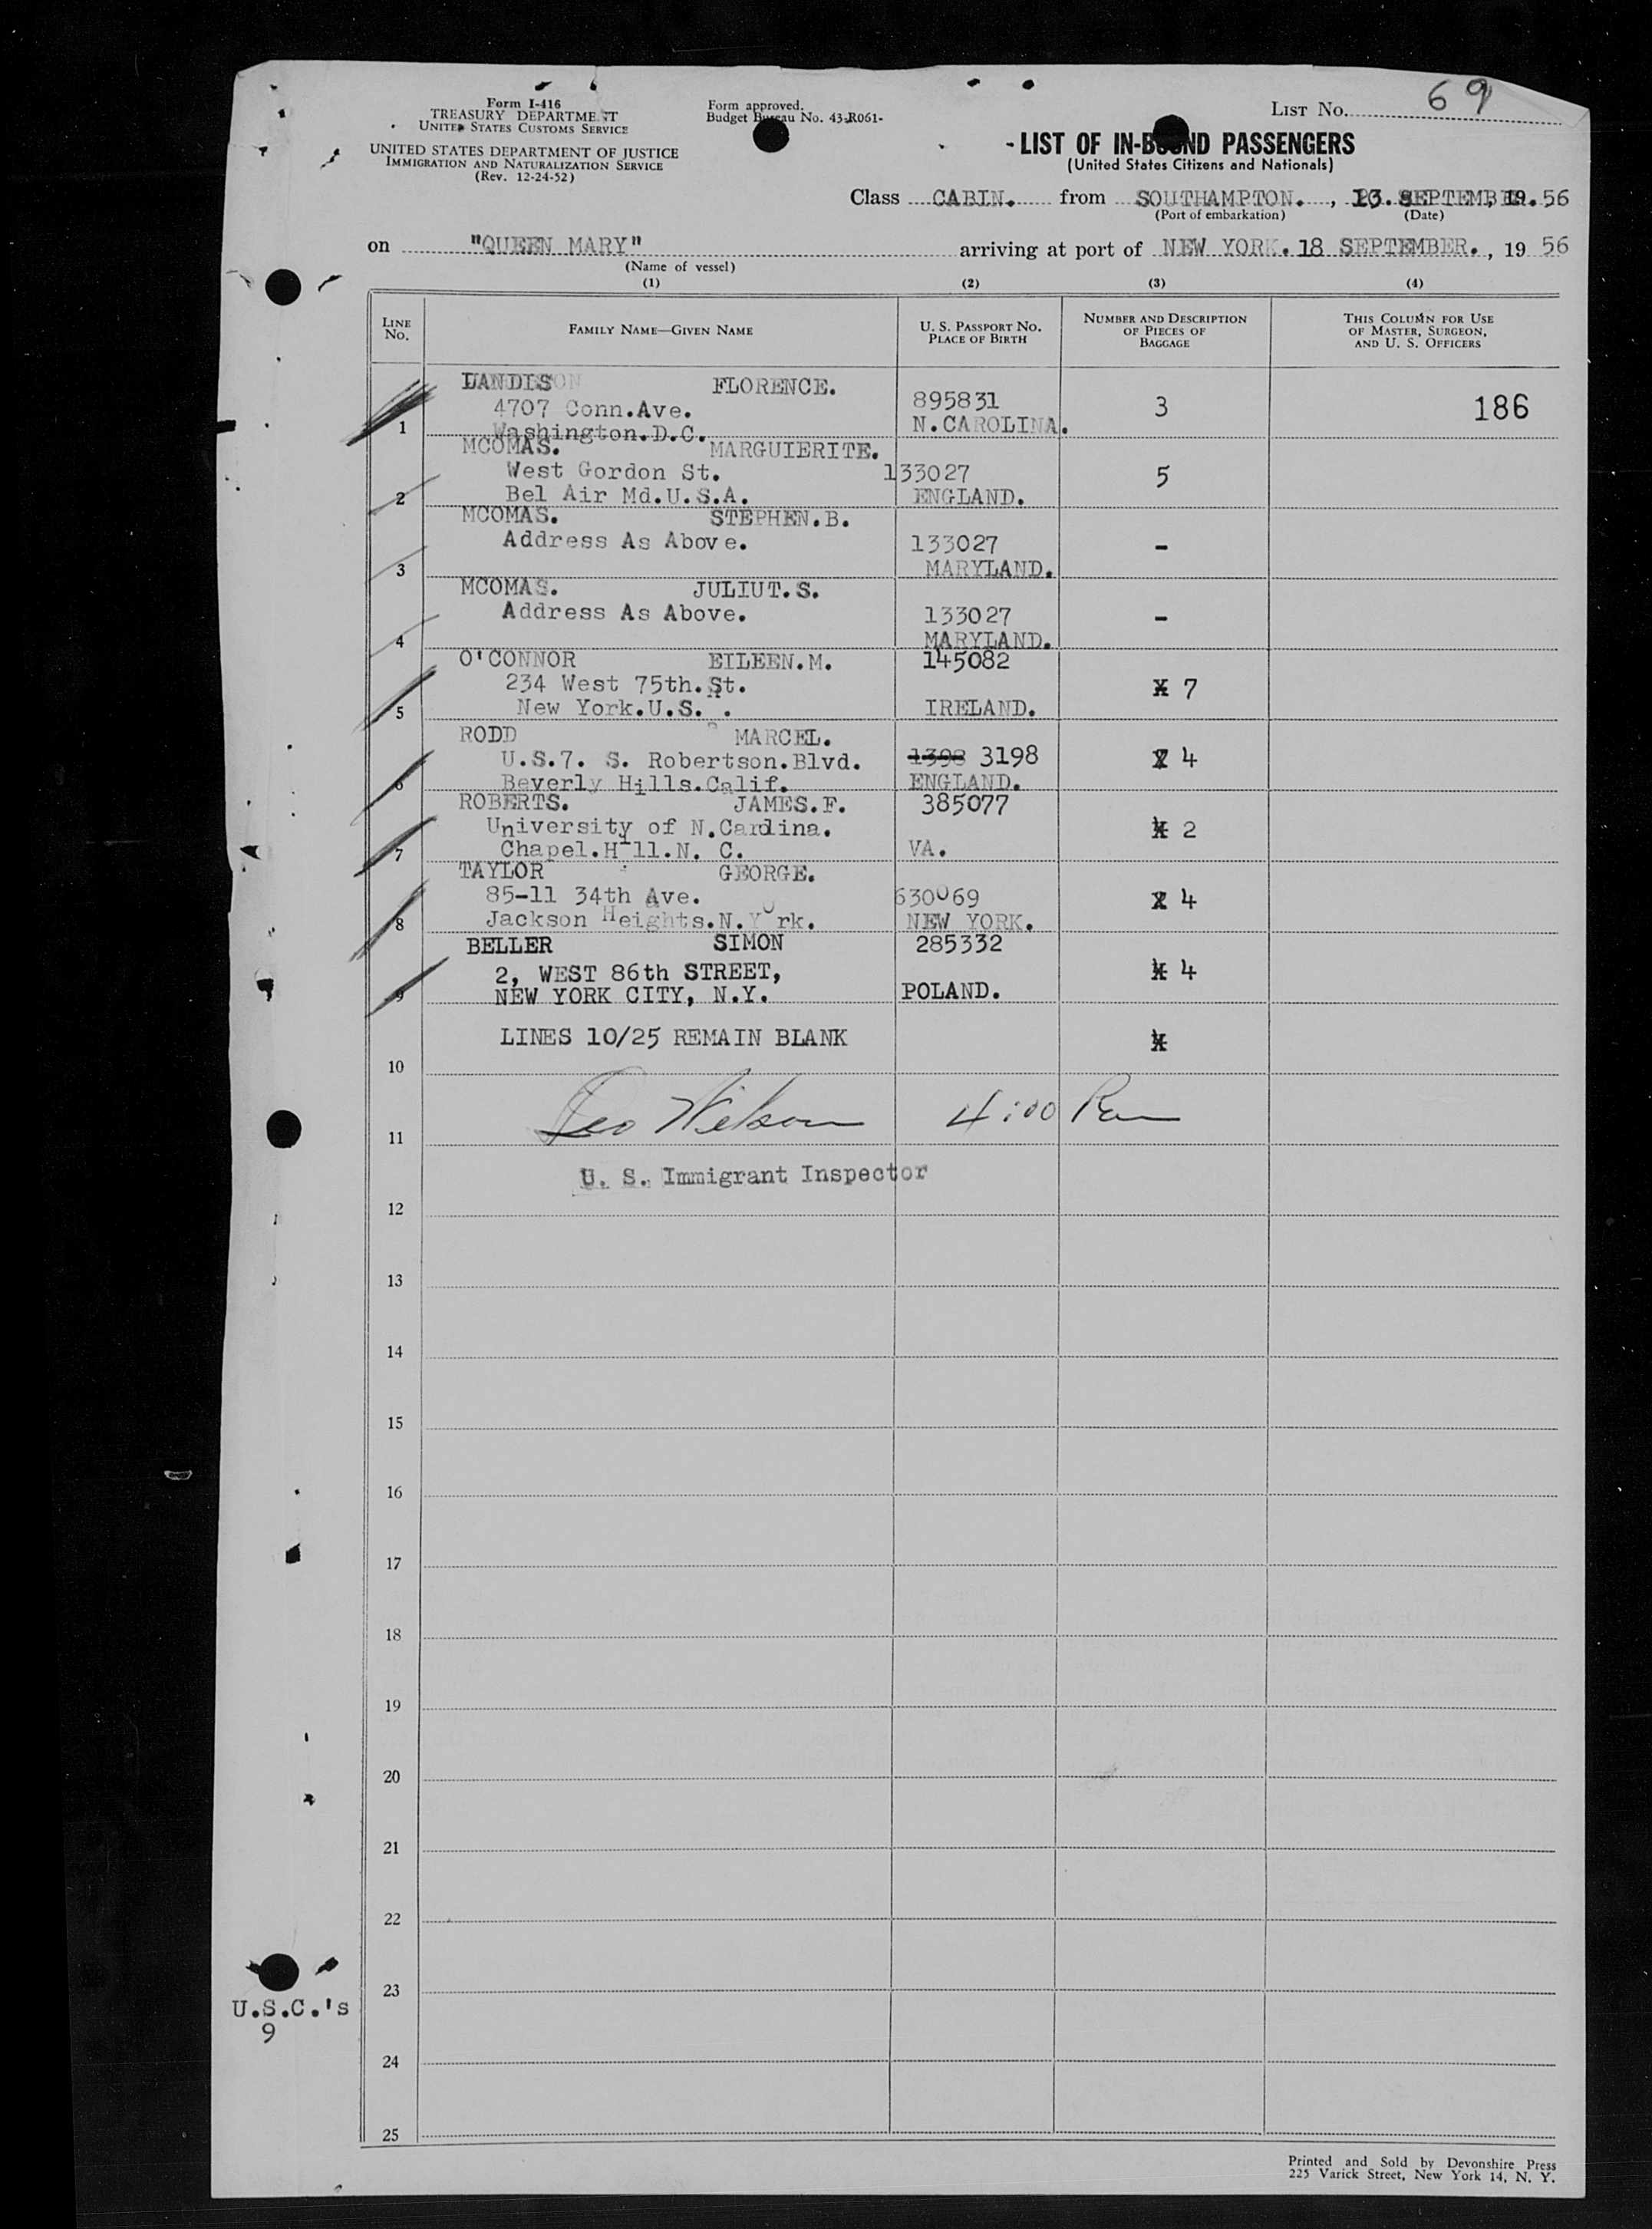 Form I-416
TREASURY DEPARTMENT
UNITED STATES CUSTOMS SERVICE
UNITED STATES DEPARTMENT OF JUSTICE
IMMIGRATION AND NATURALIZATION SERVICE
(Rev. 12-24-52)
Form approved.
Budget Bureau No. 43-R061-
LIST No. 69
LIST OF IN-BOUND PASSENGERS
(United States Citizens and Nationals)
Class CABIN. from SOUTHAMPTON. , 13. SEPTEMBER. 19.56
(Port of embarkation) (Date)
on "QUEEN MARY" arriving at port of NEW YORK. 18 SEPTEMBER. , 19 56
(Name of vessel)
(1) (2) (3) (4)
LINE No. FAMILY NAME—GIVEN NAME U. S. PASSPORT No. PLACE OF BIRTH NUMBER AND DESCRIPTION OF PIECES OF BAGGAGE THIS COLUMN FOR USE OF MASTER, SURGEON, AND U. S. OFFICERS
LANDIS FLORENCE.
4707 Conn.Ave. 895831 3 186
1 Washington.D.C. N.CAROLINA.
MCOMAS. MARGUIERITE.
West Gordon St. 133027 5
2 Bel Air Md.U.S.A. ENGLAND.
MCOMAS. STEPHEN.B.
Address As Above. 133027 -
3 MARYLAND.
MCOMAS. JULIUT.S.
Address As Above. 133027 -
4 MARYLAND.
O'CONNOR EILEEN.M. 145082
234 West 75th.St. 7
5 New York.U.S. . IRELAND.
RODD MARCEL.
U.S.7. S. Robertson.Blvd. 1398 3198 4
6 Beverly Hills.Calif. ENGLAND.
ROBERTS. JAMES.F. 385077
University of N.Cardina. 2
7 Chapel.Hill.N. C. VA.
TAYLOR GEORGE.
85-11 34th Ave. 630069 4
8 Jackson Heights.N.York. NEW YORK.
BELLER SIMON 285332
2, WEST 86th STREET, 4
9 NEW YORK CITY, N.Y. POLAND.
LINES 10/25 REMAIN BLANK
10
Geo Wilson 4:00 Pm
11
U. S. Immigrant Inspector
12
13
14
15
16
17
18
19
20
21
22
23
U.S.C.'s
9
24
25
Printed and Sold by Devonshire Press
225 Varick Street, New York 14, N. Y.